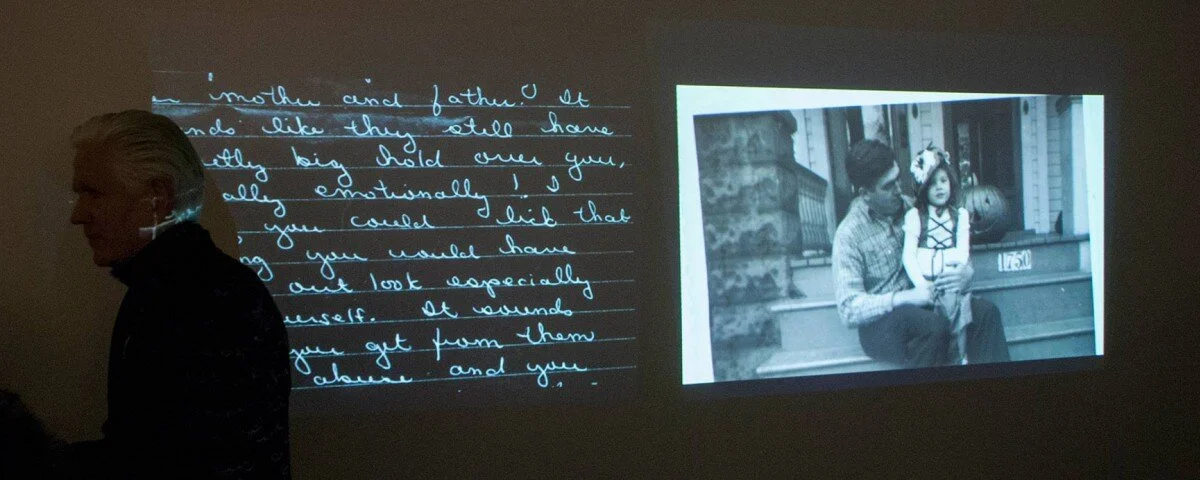 mother and father. It
like they still have
big hold over you,
ally emotionally! I
you could lick that
ng you would have
out look especially
urself. It sounds
you get from them
abuse and you
1750